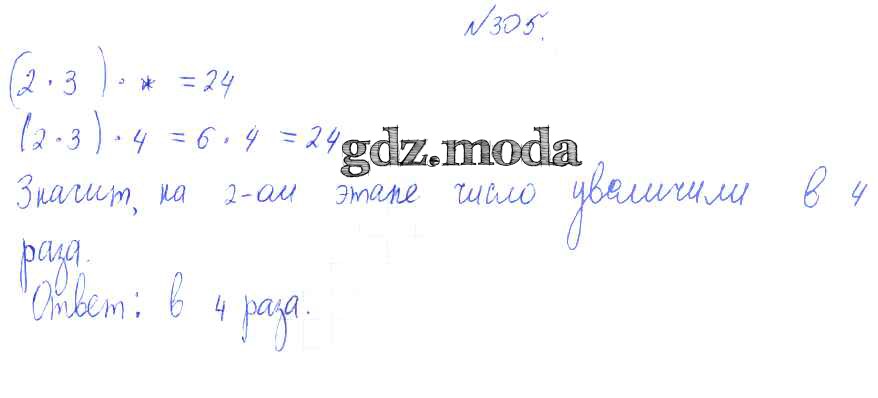 №305.
(2 · 3) · * = 24
(2 · 3) · 4 = 6 · 4 = 24
gdz.moda
Значит, на 2-ом этапе число увеличили в 4
раза.
Ответ: в 4 раза.